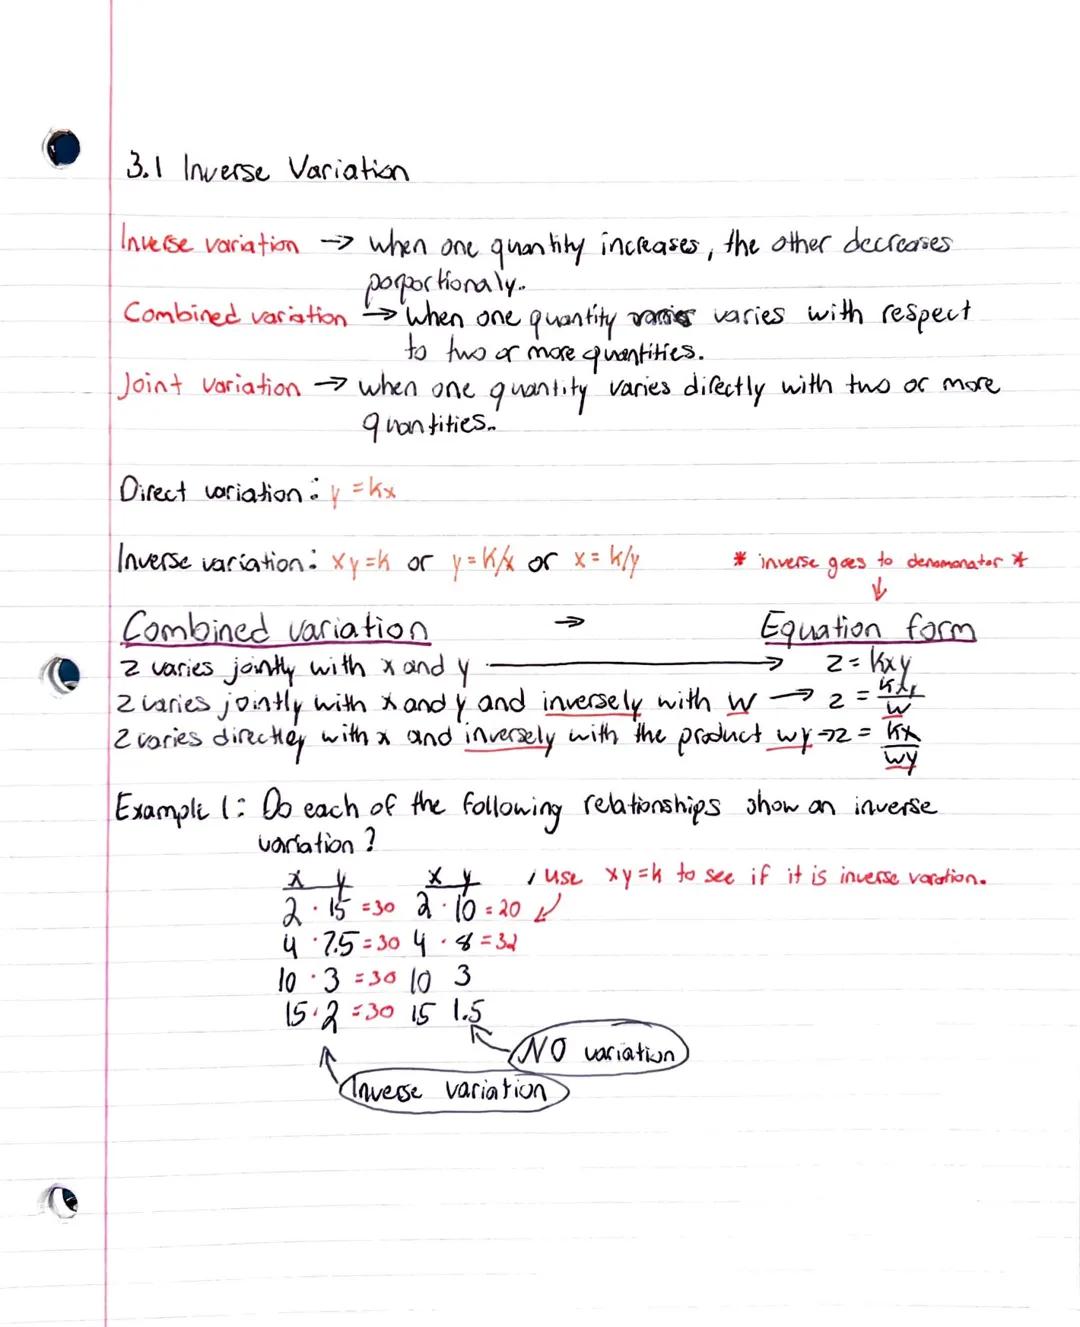 3.1 Inverse Variation
Inverse variation → when one quantity increases, the other decreases
porportionaly.
Combined variation → when one quantity varies with respect
to two or more quantities.
Joint variation → when one quantity varies directly with two or more
quantities.
Direct variation: y = kx
Inverse variation: xy=k or y=k/x or x=k/y * inverse goes to denomonator *
↓
Combined variation → Equation form
z varies jointly with x and y → z = kxy
z varies jointly with x and y and inversely with w → z = kxy/w
z varies directley with x and inversely with the product wy → z = kx/wy
Example 1: Do each of the following relationships show an inverse
variation?
x y x y use xy=k to see if it is inverse varation.
2 · 15 = 30 2 · 10 = 20
4 · 7.5 = 30 4 · 8 = 32
10 · 3 = 30 10 3
15 · 2 = 30 15 1.5
NO variation
Inverse variation